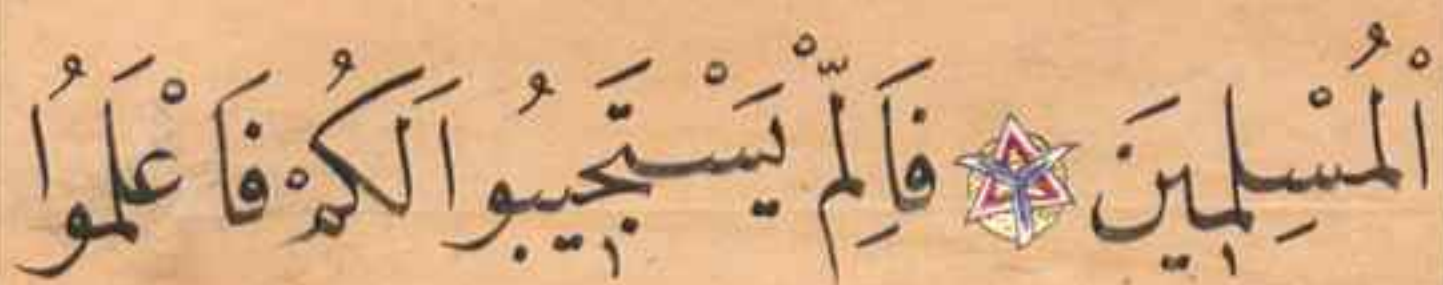 اْلمُسْلِمينَ فَاِلَّمْ يَسْتَجيبُوا لَكُمْ فَاعْلَمُوا